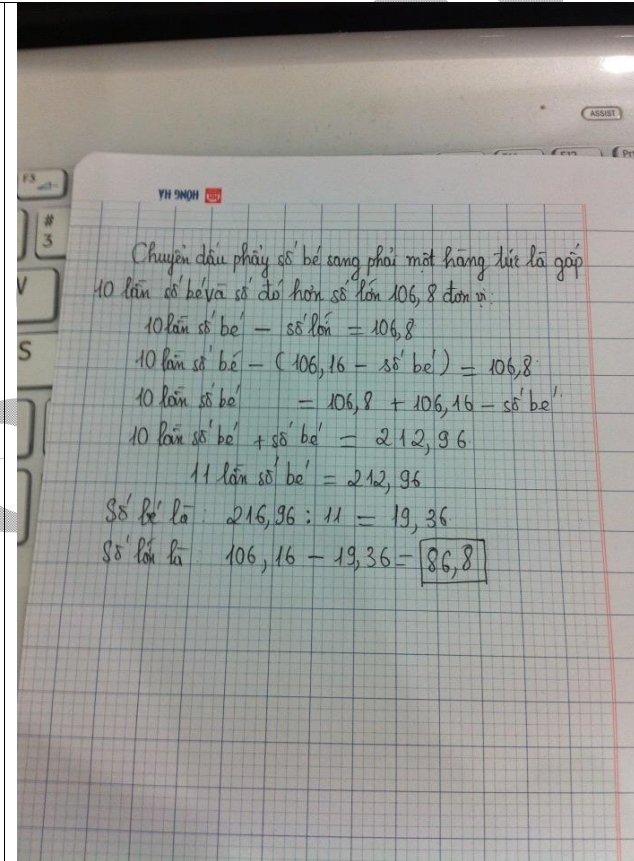 ASSIST
F3
F12
Pr
#
3
S
HONG HA
Chuyển dấu phẩy số bé sang phải một hàng tức là gấp
10 lần số bé và số đó hơn số lớn 106,8 đơn vị:
10 lần số bé - số lớn = 106,8
10 lần số bé - (106,16 - số bé) = 106,8
10 lần số bé = 106,8 + 106,16 - số bé
10 lần số bé + số bé = 212,96
11 lần số bé = 212,96
Số bé là: 216,96 : 11 = 19,36
Số lớn là 106,16 - 19,36 = 86,8